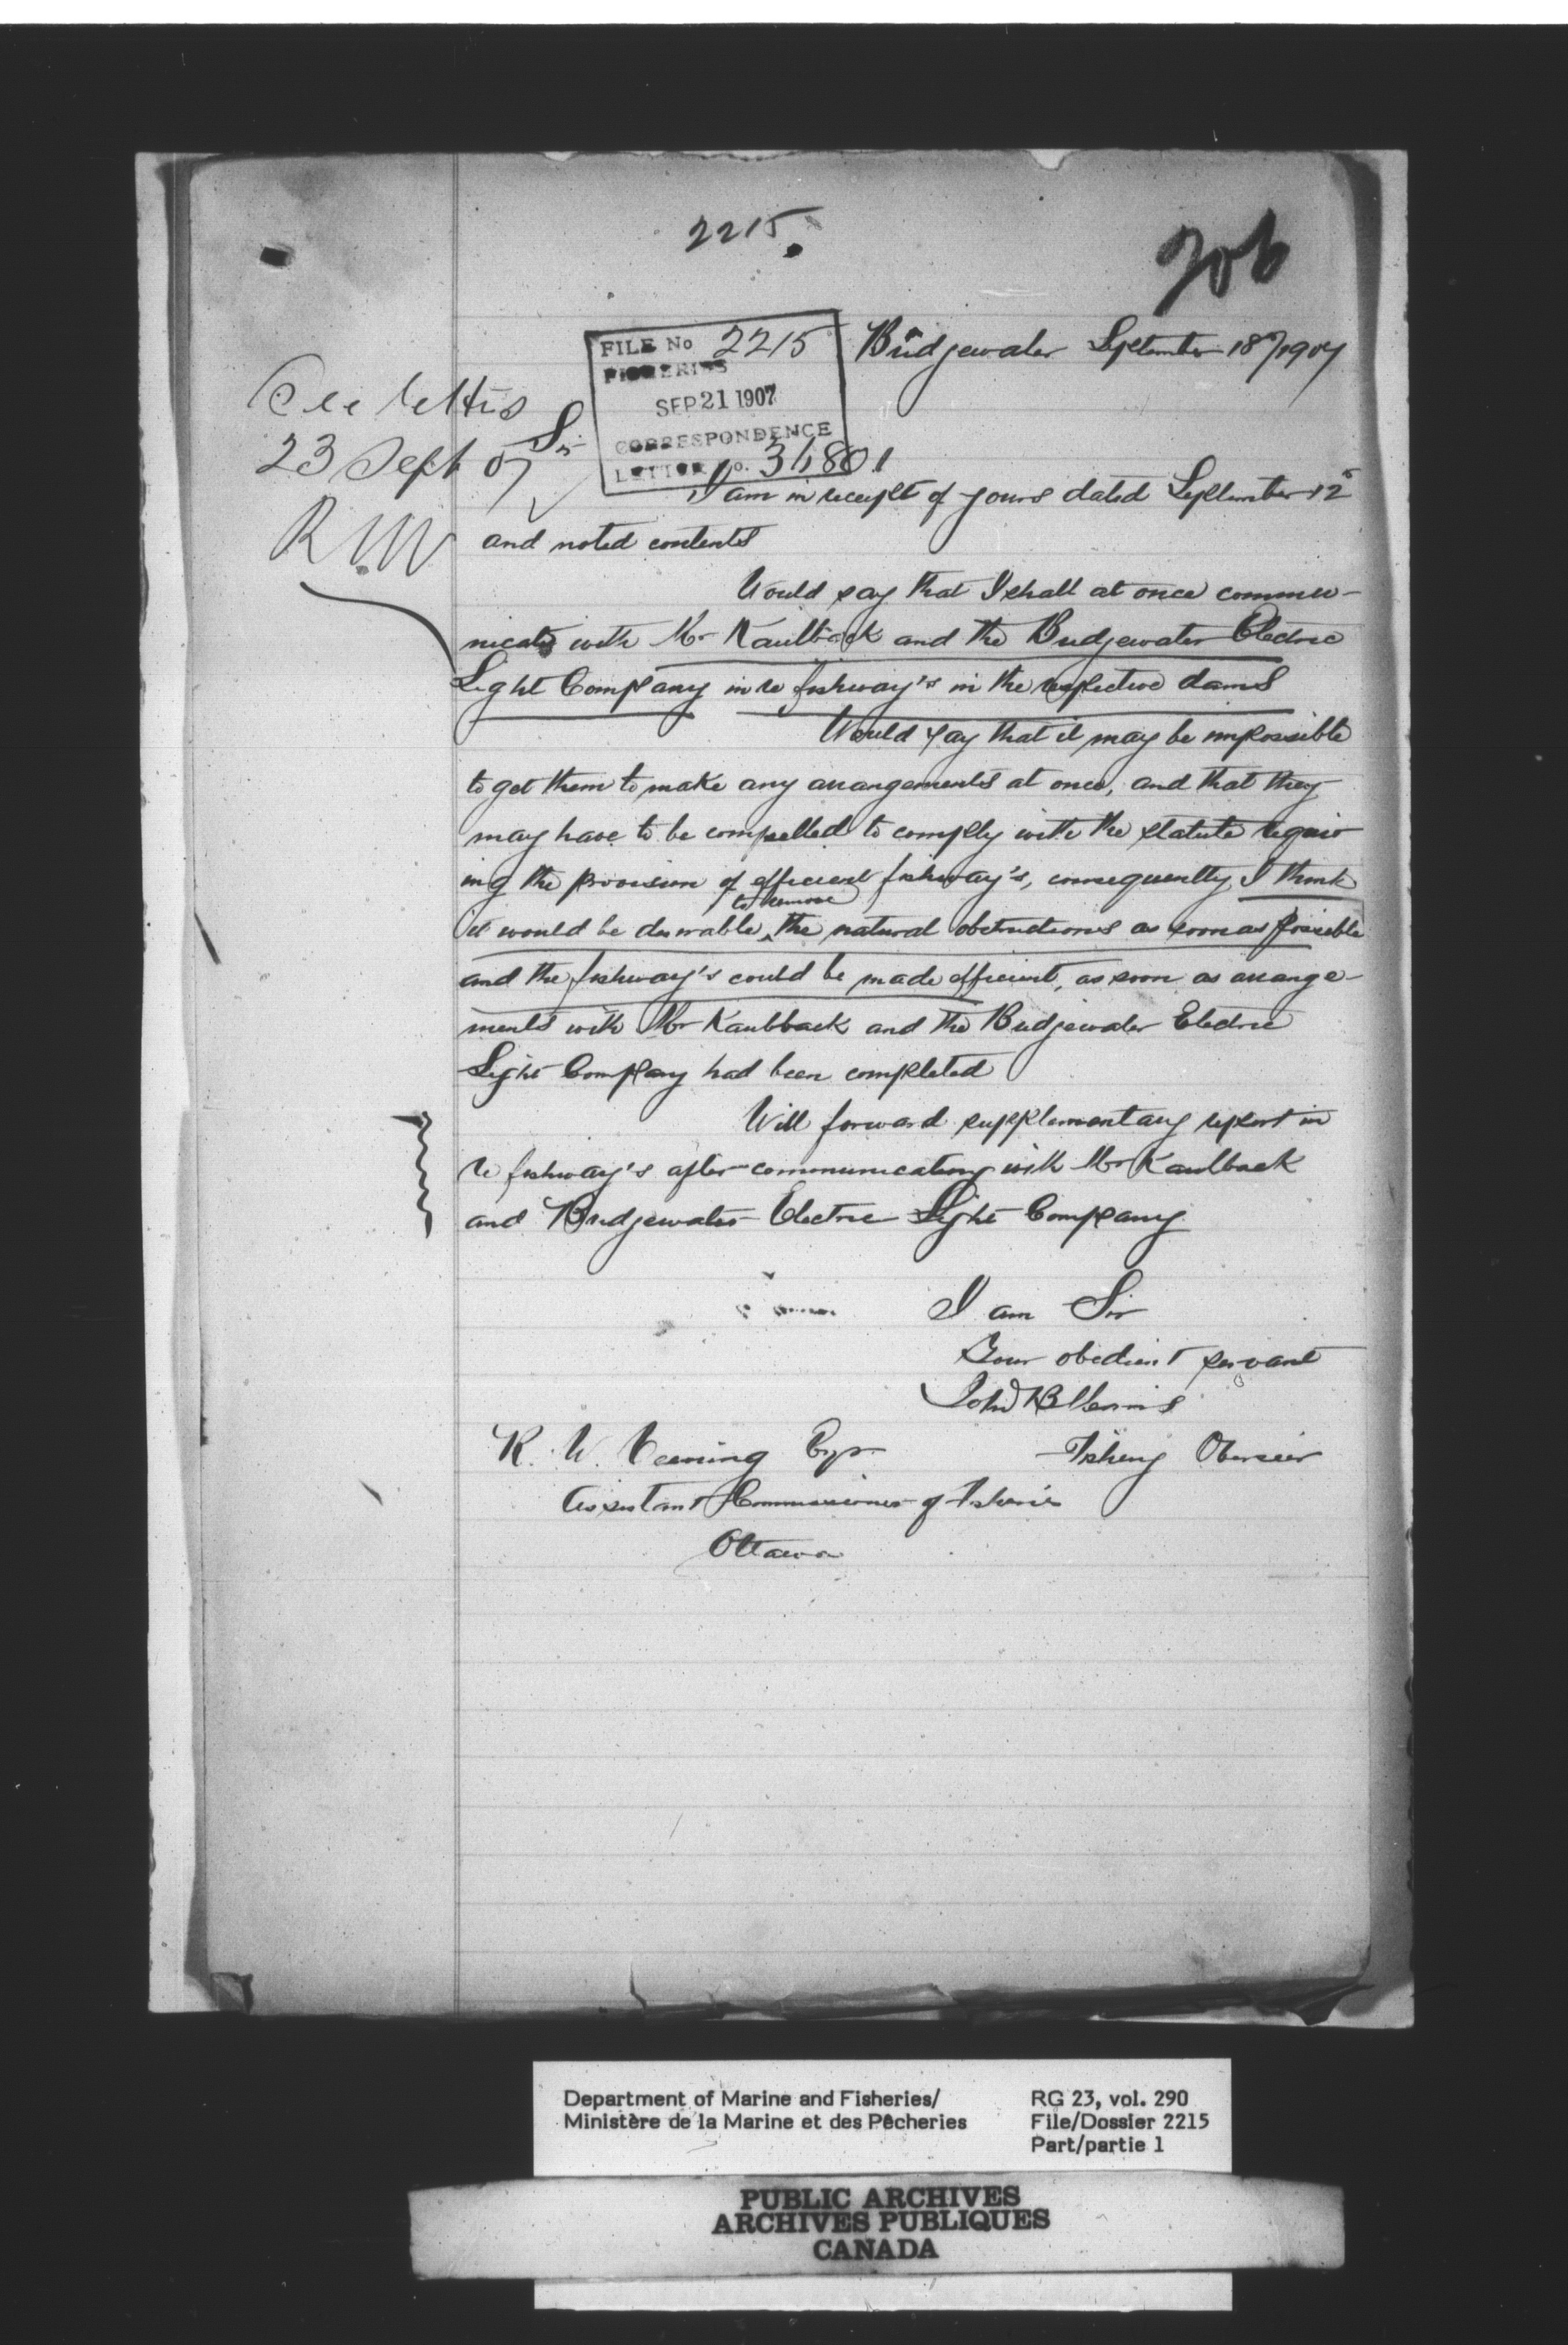 2215
206
FILE No 2215
FISHERIES
SEP 21 1907
CORRESPONDENCE
LETTER No. 34801
Bridgewater September 18th/1907
See letters
23 Sept 07
R.W.V
Sir
I am in receipt of yours dated September 12th
and noted contents
Would say that I shall at once commu-
nicate with Mr Kaulback and the Bridgewater Electric
Light Company in re fishway's in the respective dams
Would say that it may be impossible
to get them to make any arrangements at once, and that they
may have to be compelled to comply with the statute requir
ing the provision of efficient fishway's, consequently, I think
it would be desirable to remove the natural obstructions as soon as possible
and the fishway's could be made efficient, as soon as arrange-
ments with Mr Kaulback and the Bridgewater Electric
Light Company had been completed
Will forward supplementary report in
re fishway's after communicating with Mr Kaulback
and Bridgewater Electric Light Company
I am Sir
Your obedient servant
John B
Fishery Overseer
R. W. Venning Esqr
Assistant Commissioner of Fisheries
Ottawa
Department of Marine and Fisheries/
Ministère de la Marine et des Pêcheries
RG 23, vol. 290
File/Dossier 2215
Part/partie 1
PUBLIC ARCHIVES
ARCHIVES PUBLIQUES
CANADA